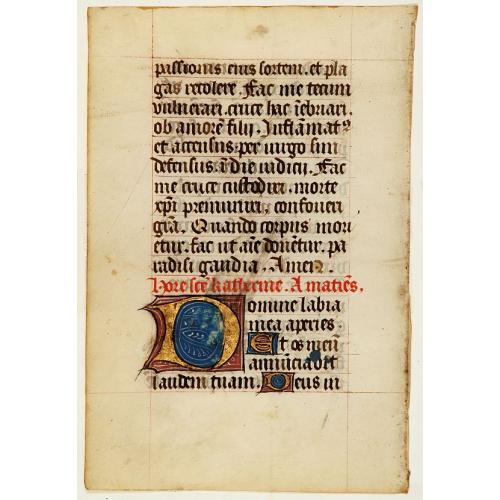 passionis eius sortem. et pla
gas recolere. Fac me plagis
vulnerari. cruce hac īebriari.
ob amorē filii. Inflāmatꝰ
et accensus. per uirgo sim
defensus ī die iudicii. Fac
me cruce custodiri. morte
xp̄i premuniri, confoueri
gr̄a. Quando corpus mori
etur. fac ut aīe donetur. pa
radisi gaudia. Amen.
Hore scē katherine. A matīes.
Domine labia
mea aperies.
Et os meū
annūciabit
laudem tuam. Deus in